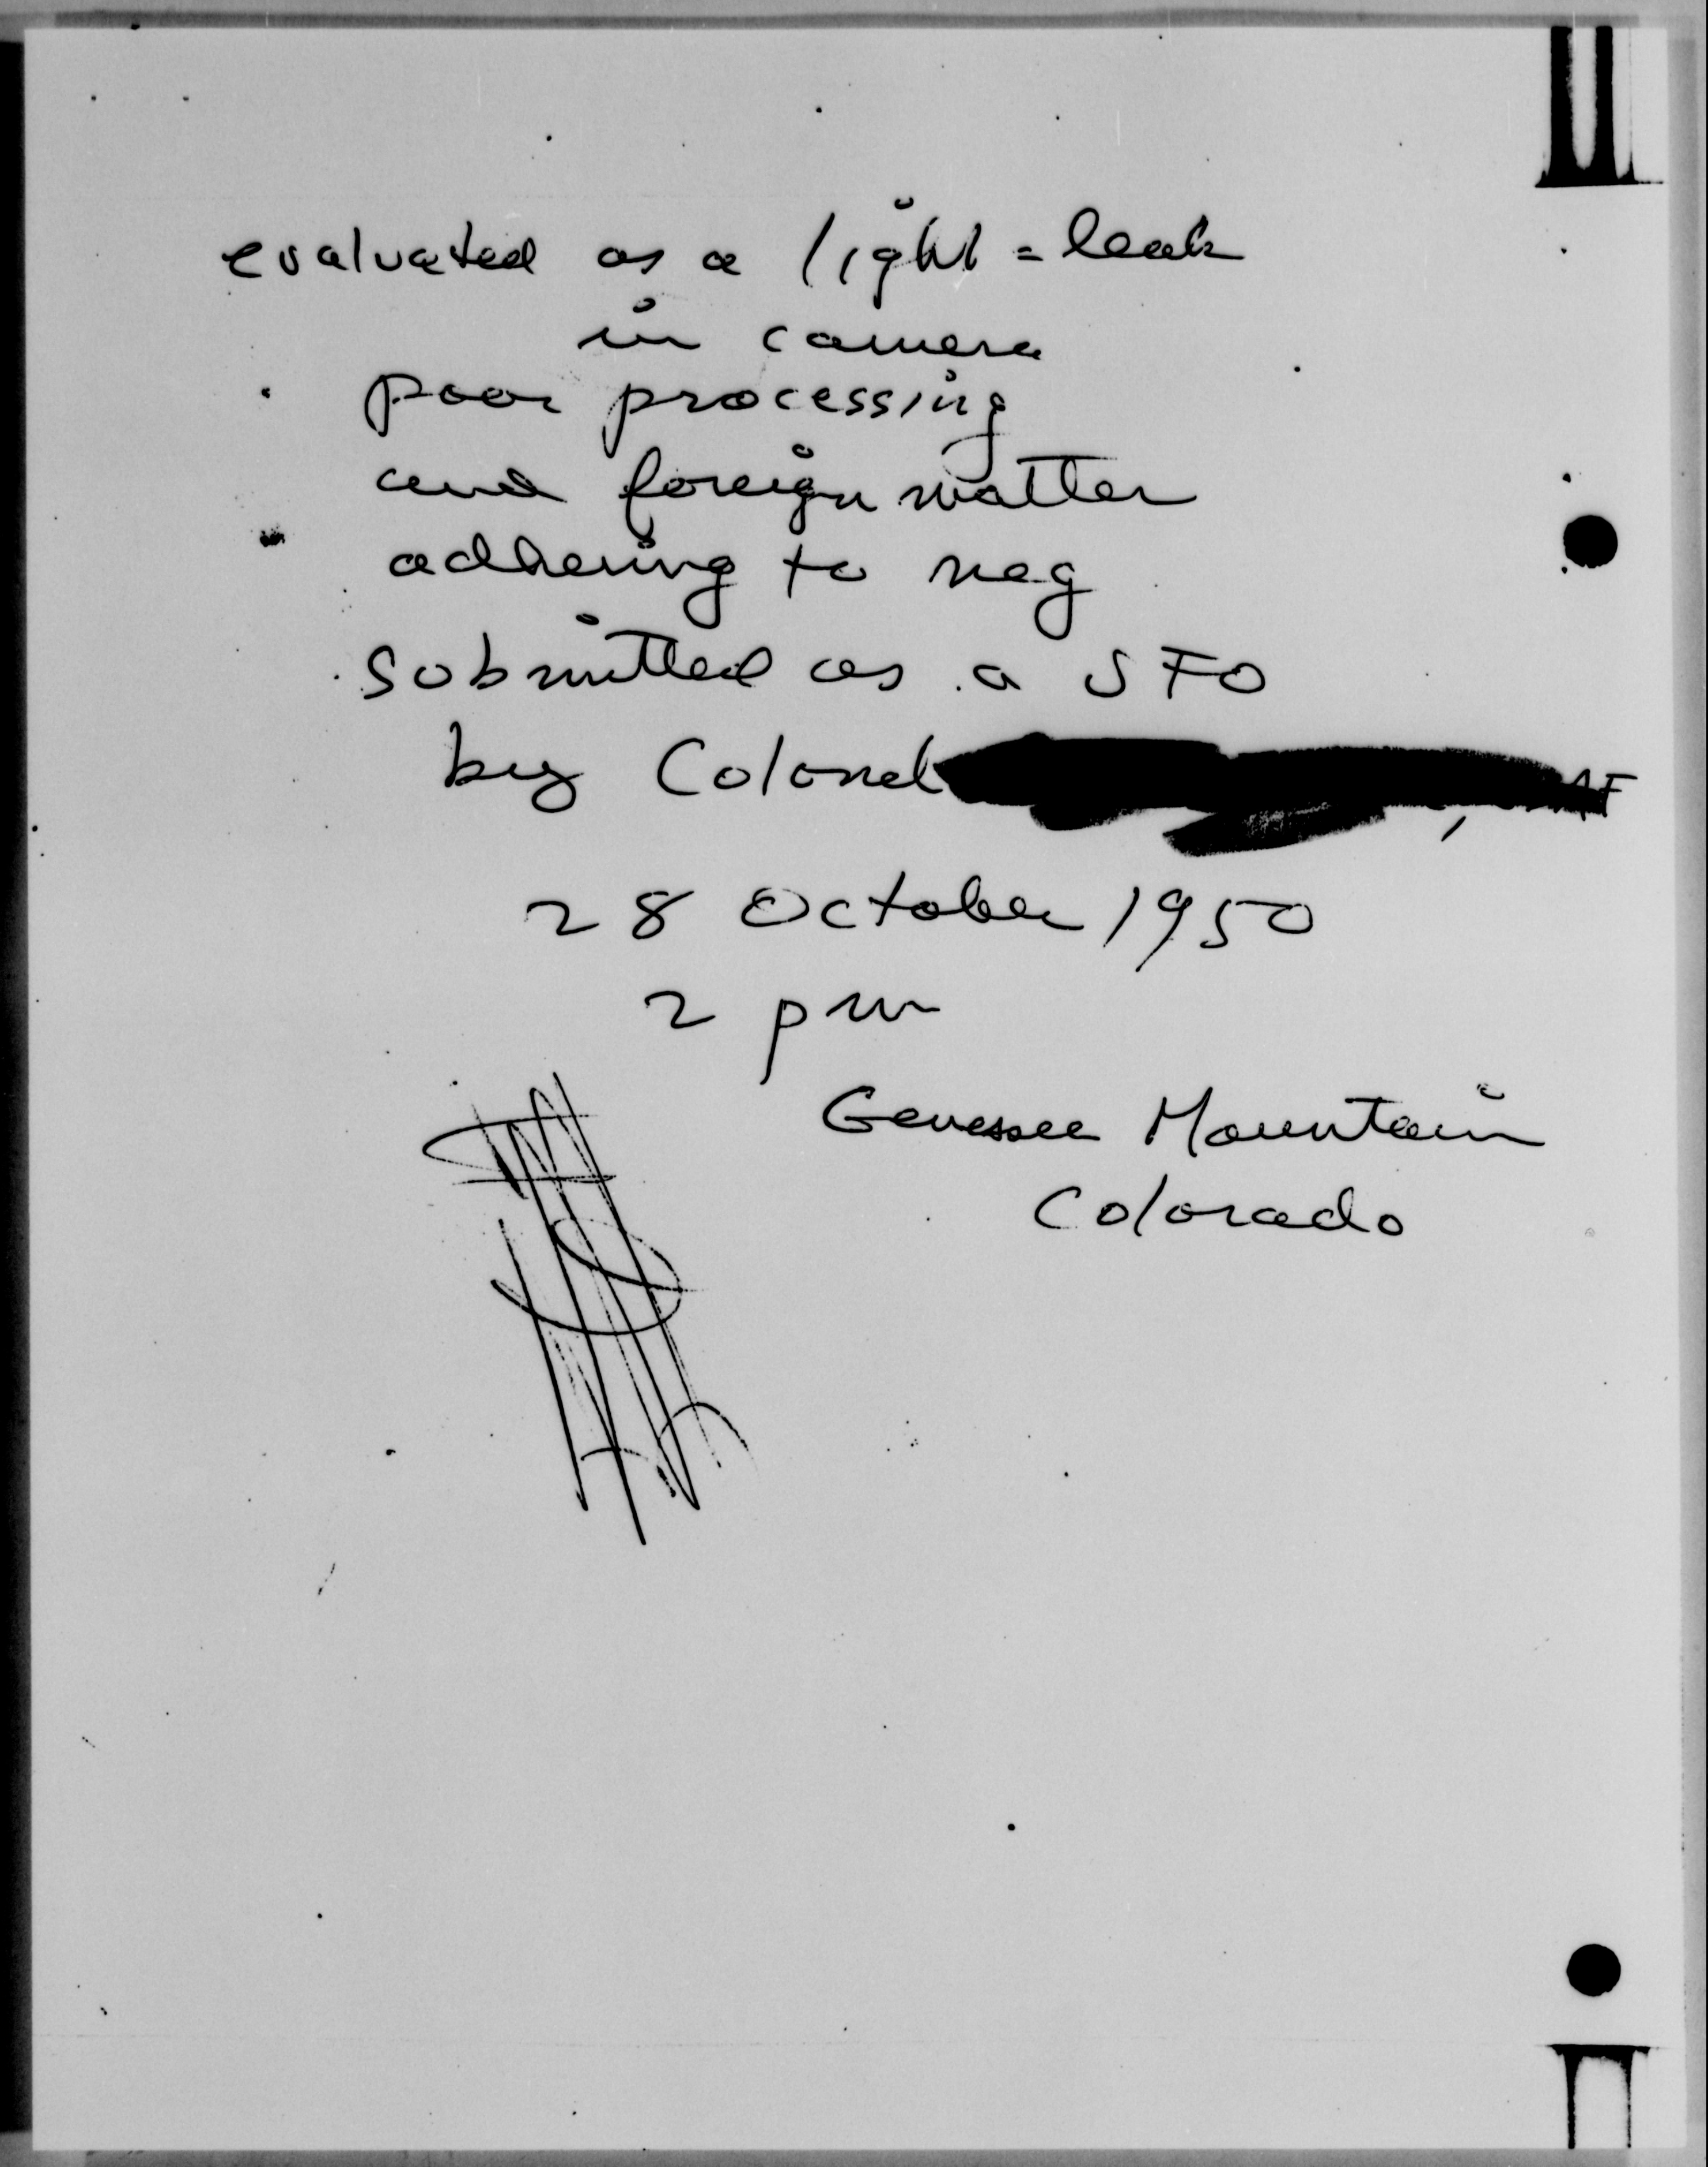 evaluated as a light = leak
in camera
poor processing
and foreign matter
adhering to neg
submitted as a UFO
by Colonel , AF
28 October 1950
2 pm
Genessee Mountain
Colorado